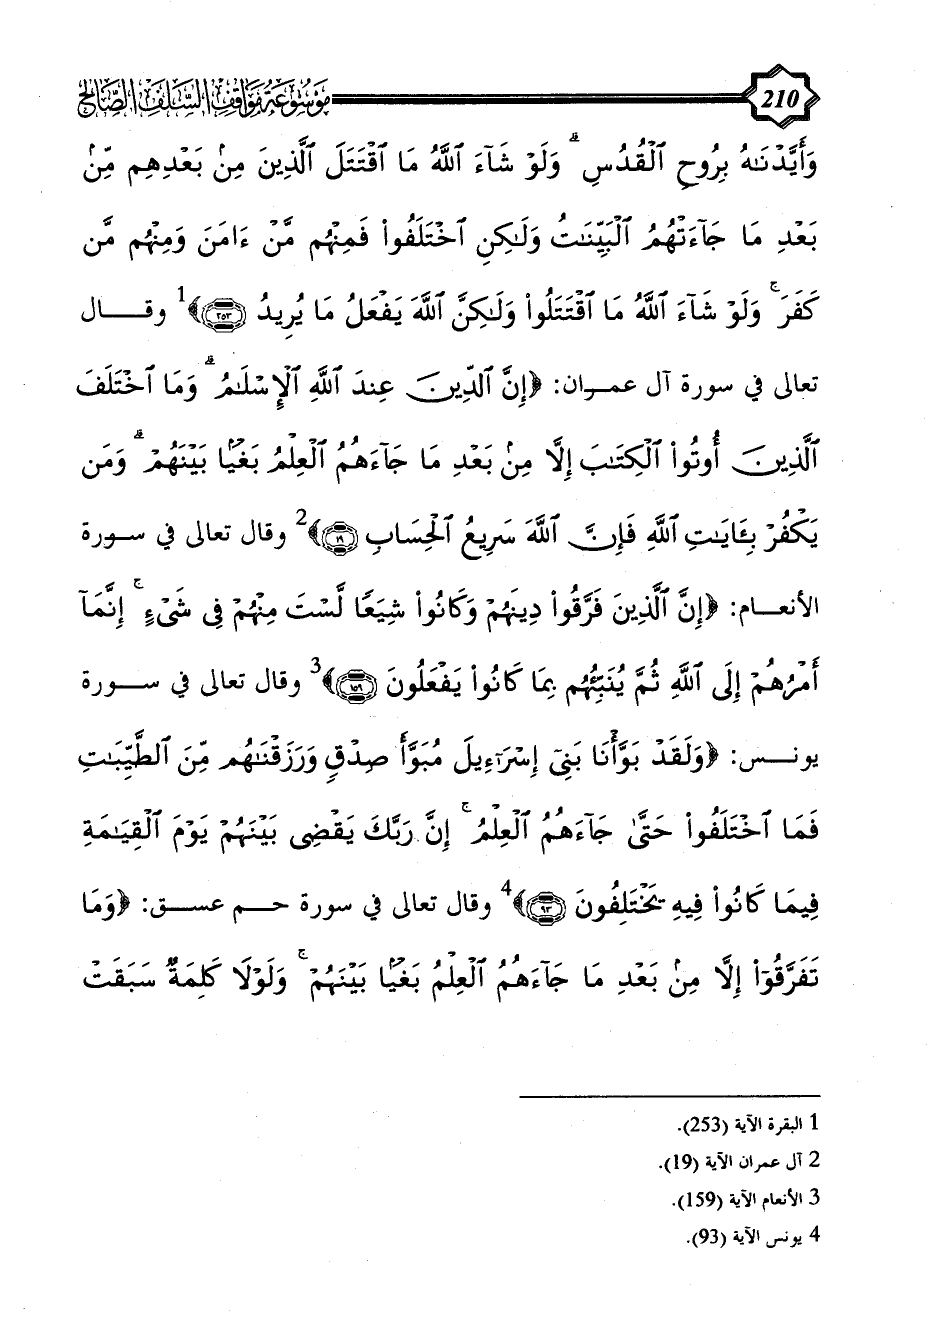 موسوعة مواقف السلف الصالح 210
وَأَيَّدْنَٰهُ بِرُوحِ ٱلْقُدُسِ ۗ وَلَوْ شَآءَ ٱللَّهُ مَا ٱقْتَتَلَ ٱلَّذِينَ مِنۢ بَعْدِهِم مِّنۢ
بَعْدِ مَا جَآءَتْهُمُ ٱلْبَيِّنَٰتُ وَلَٰكِنِ ٱخْتَلَفُوا۟ فَمِنْهُم مَّنْ ءَامَنَ وَمِنْهُم مَّن
كَفَرَ ۚ وَلَوْ شَآءَ ٱللَّهُ مَا ٱقْتَتَلُوا۟ وَلَٰكِنَّ ٱللَّهَ يَفْعَلُ مَا يُرِيدُ ﴿٢٥٣﴾ 1 وقــال
تعالى في سورة آل عمـران: ﴿إِنَّ ٱلدِّينَ عِندَ ٱللَّهِ ٱلْإِسْلَٰمُ ۗ وَمَا ٱخْتَلَفَ
ٱلَّذِينَ أُوتُوا۟ ٱلْكِتَٰبَ إِلَّا مِنۢ بَعْدِ مَا جَآءَهُمُ ٱلْعِلْمُ بَغْيًۢا بَيْنَهُمْ ۗ وَمَن
يَكْفُرْ بِـَٔايَٰتِ ٱللَّهِ فَإِنَّ ٱللَّهَ سَرِيعُ ٱلْحِسَابِ ﴿١٩﴾ 2 وقال تعالى في سـورة
الأنعـــام: ﴿إِنَّ ٱلَّذِينَ فَرَّقُوا۟ دِينَهُمْ وَكَانُوا۟ شِيَعًا لَّسْتَ مِنْهُمْ فِى شَىْءٍ ۚ إِنَّمَآ
أَمْرُهُمْ إِلَى ٱللَّهِ ثُمَّ يُنَبِّئُهُم بِمَا كَانُوا۟ يَفْعَلُونَ ﴿١٥٩﴾ 3 وقال تعالى في ســورة
يونـــس: ﴿وَلَقَدْ بَوَّأْنَا بَنِىٓ إِسْرَٰٓءِيلَ مُبَوَّأَ صِدْقٍ وَرَزَقْنَٰهُم مِّنَ ٱلطَّيِّبَٰتِ
فَمَا ٱخْتَلَفُوا۟ حَتَّىٰ جَآءَهُمُ ٱلْعِلْمُ ۚ إِنَّ رَبَّكَ يَقْضِى بَيْنَهُمْ يَوْمَ ٱلْقِيَٰمَةِ
فِيمَا كَانُوا۟ فِيهِ يَخْتَلِفُونَ ﴿٩٣﴾ 4 وقال تعالى في سورة حــم عسـق: ﴿وَمَا
تَفَرَّقُوٓا۟ إِلَّا مِنۢ بَعْدِ مَا جَآءَهُمُ ٱلْعِلْمُ بَغْيًۢا بَيْنَهُمْ ۚ وَلَوْلَا كَلِمَةٌ سَبَقَتْ
1 البقرة الآية (253).
2 آل عمران الآية (19).
3 الأنعام الآية (159).
4 يونس الآية (93).